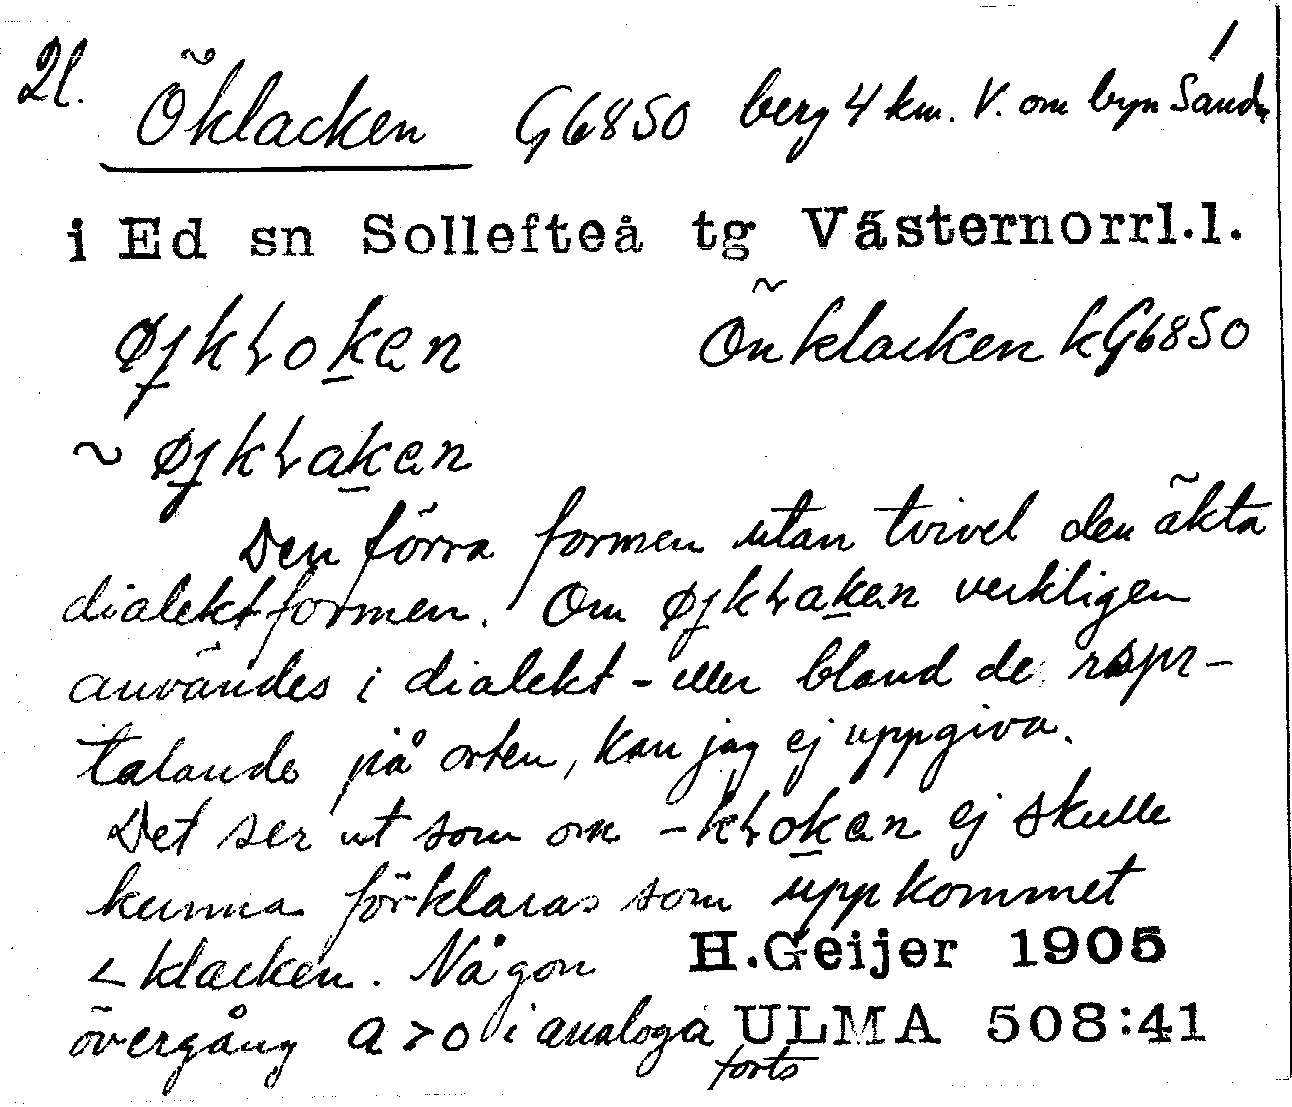 1
2l. Öklacken G6850 berg 4 km. V. om byn Sand
i Ed sn Sollefteå tg Västernorrl.l.
øjkƚoken Önklacken k G6850
~ øjkƚaken
Den förra formen utan tvivel den äkta
dialektformen. Om øjkƚaken verkligen
användes i dialekt - eller bland de rspr-
talande på orten, kan jag ej uppgiva.
Det ser ut som om -kƚoken ej skulle
kunna förklaras som uppkommet
< klacken. Någon H.Geijer 1905
övergång a > o i analoga ULMA 508:41
forts